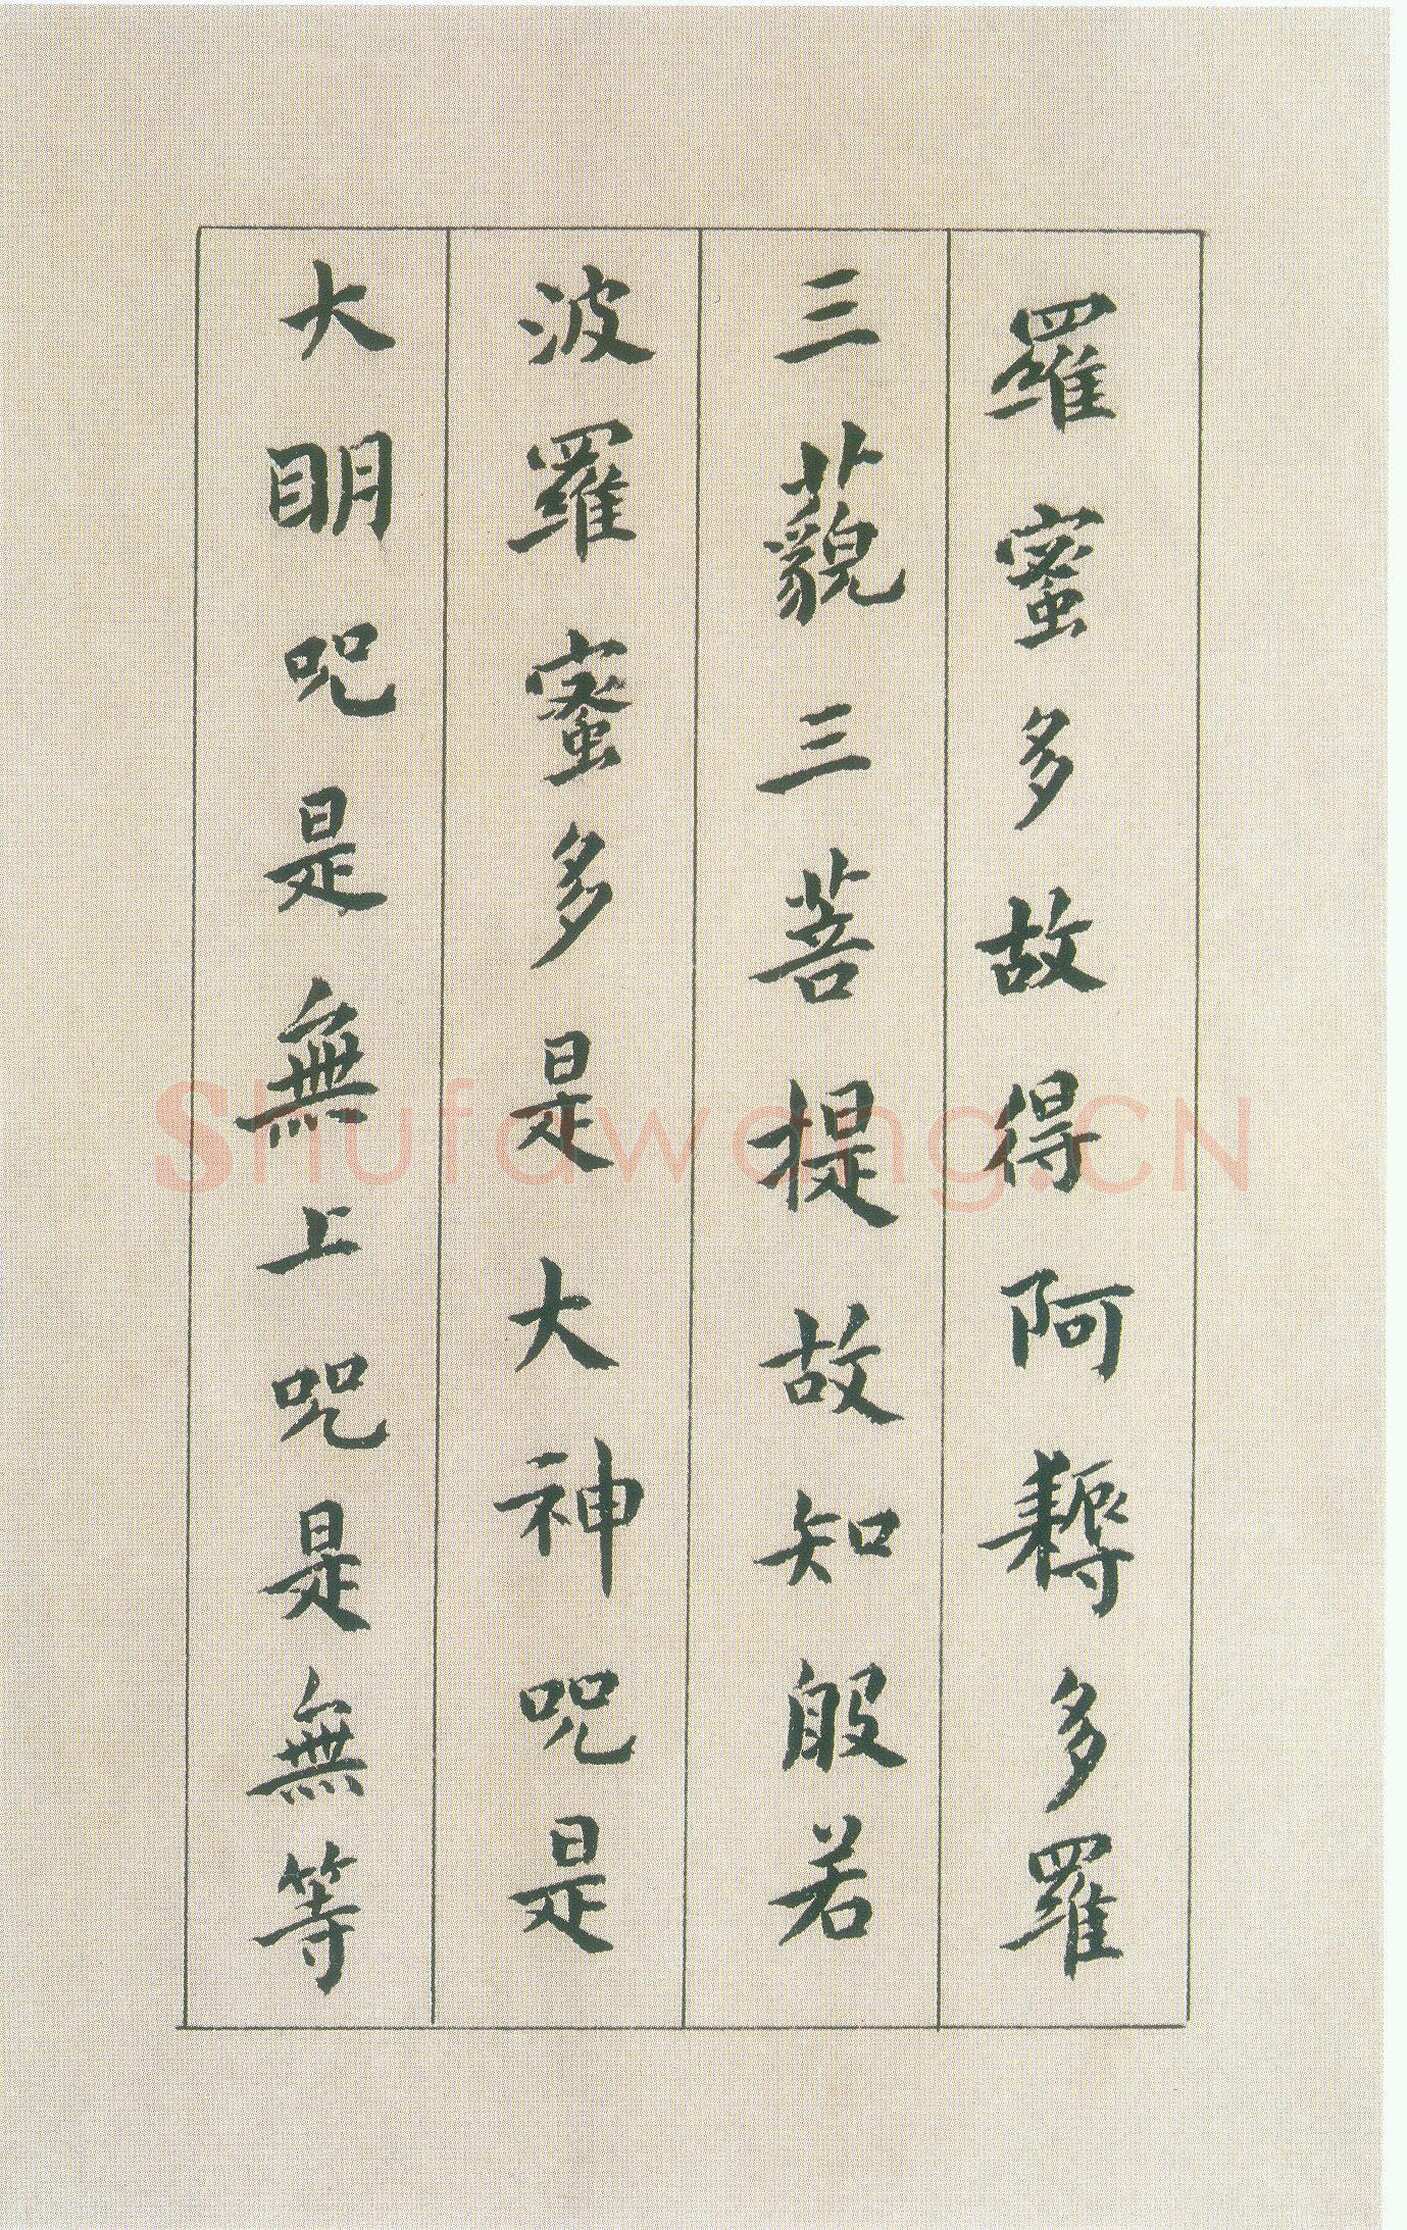 羅蜜多故得阿耨多羅
三藐三菩提故知般若
波羅蜜多是大神咒是
大明咒是無上咒是無等
Shufawang.CN